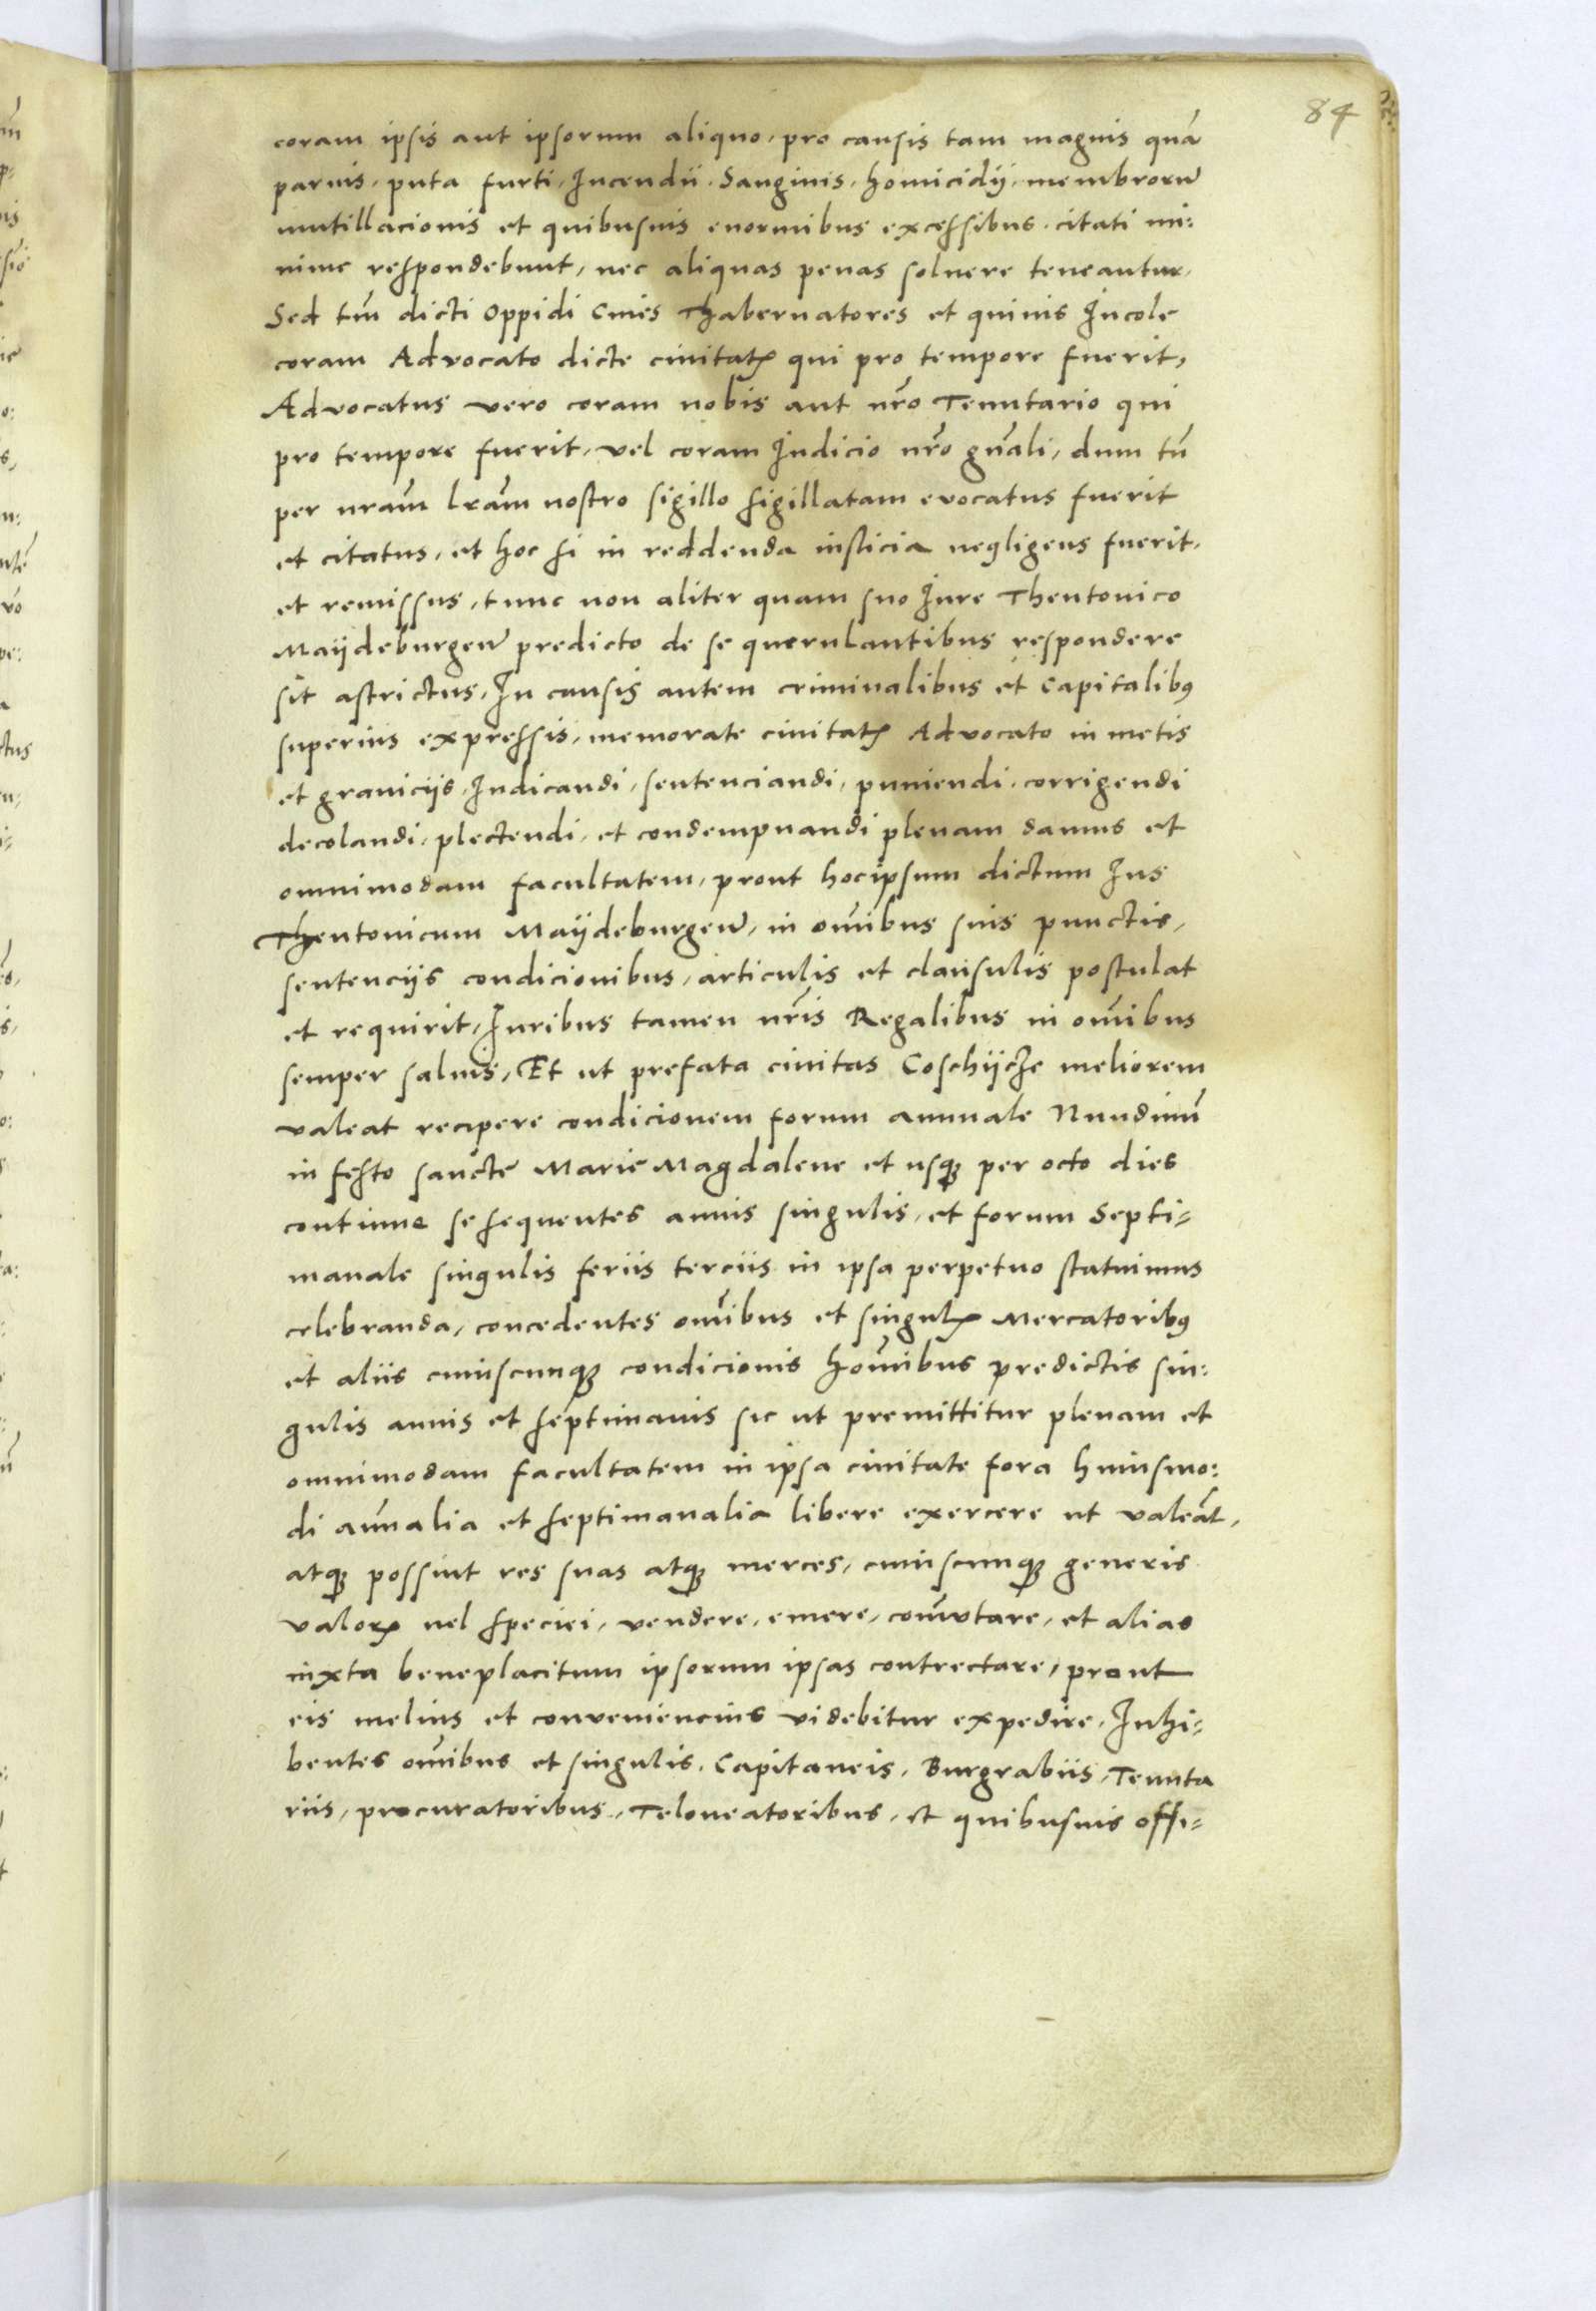 84
coram ipsis aut ipsorum aliquo, pro causis tam magnis quā
paruis, puta furti, Incendii, Sanginis, homicidij, membrorū
mutillacionis et quibusuis enormibus excessibus, citati mi:
nime respondebunt, nec aliquas penas soluere teneantur,
Sed tm̄ dicti Oppidi Ciues Thabernatores et quiuis Incole
coram Advocato dicte ciuitatꝭ qui pro tempore fuerit,
Advocatus vero coram nobis aut nr̄o Tenutario qui
pro tempore fuerit, vel coram Iudicio nr̄o gn̄ali, dum tn̄
per nram̄ lram̄ nostro sigillo sigillatam evocatus fuerit
et citatus, et hoc si in reddenda iusticia negligens fuerit,
et remissus, tunc non aliter quam suo Iure Theutonico
Maÿdeburgeñ predicto de se querulantibus respondere
sit astrictus, In causis autem criminalibus et Capitalibꝰ
superius expressis, memorate ciuitatꝭ Advocato in metis
et graniciis, Iudicandi, sentenciandi, puniendi, corrigendi
decolandi, plectendi, et condempnandi plenam damus et
omnimodam facultatem, prout hocipsum dictum Ius
Theutonicum Maÿdeburgeñ, in om̄ibus suis punctis,
sentenciis condicionibus, articulis et clausulis postulat
et requirit, Iuribus tamen nr̄is Regalibus in om̄ibus
semper saluis, Et ut prefata ciuitas Coschÿcze meliorem
valeat recipere condicionem forum annuale Nundinū
in festo sancte Marie Magdalene et usqꝫ per octo dies
continue se sequentes annis singulis, et forum Septi=
manale singulis feriis terciis in ipsa perpetuo statuimus
celebranda, concedentes om̄ibus et singulꝭ Mercatoribꝰ
et aliis cuiuscunqꝫ condicionis hom̄ibus predictis sin:
gulis annis et septimanis sic ut premittitur plenam et
omnimodam facultatem in ipsa ciuitate fora huiusmo:
di anñalia et septimanalia libere exercere ut valeāt,
atqꝫ possint res suas atqꝫ merces, cuiuscunqꝫ generis
valorꝭ uel speciei, vendere, emere, com̄utare, et alias
iuxta beneplacitum ipsorum ipsas contrectare, prout
eis melius et conveniencius videbitur expedire, Inhi=
bentes om̄ibus et singulis, Capitaneis, Burgrabiis, Tenuta
riis, procuratoribus, Teloneatoribus, et quibusuis offi=